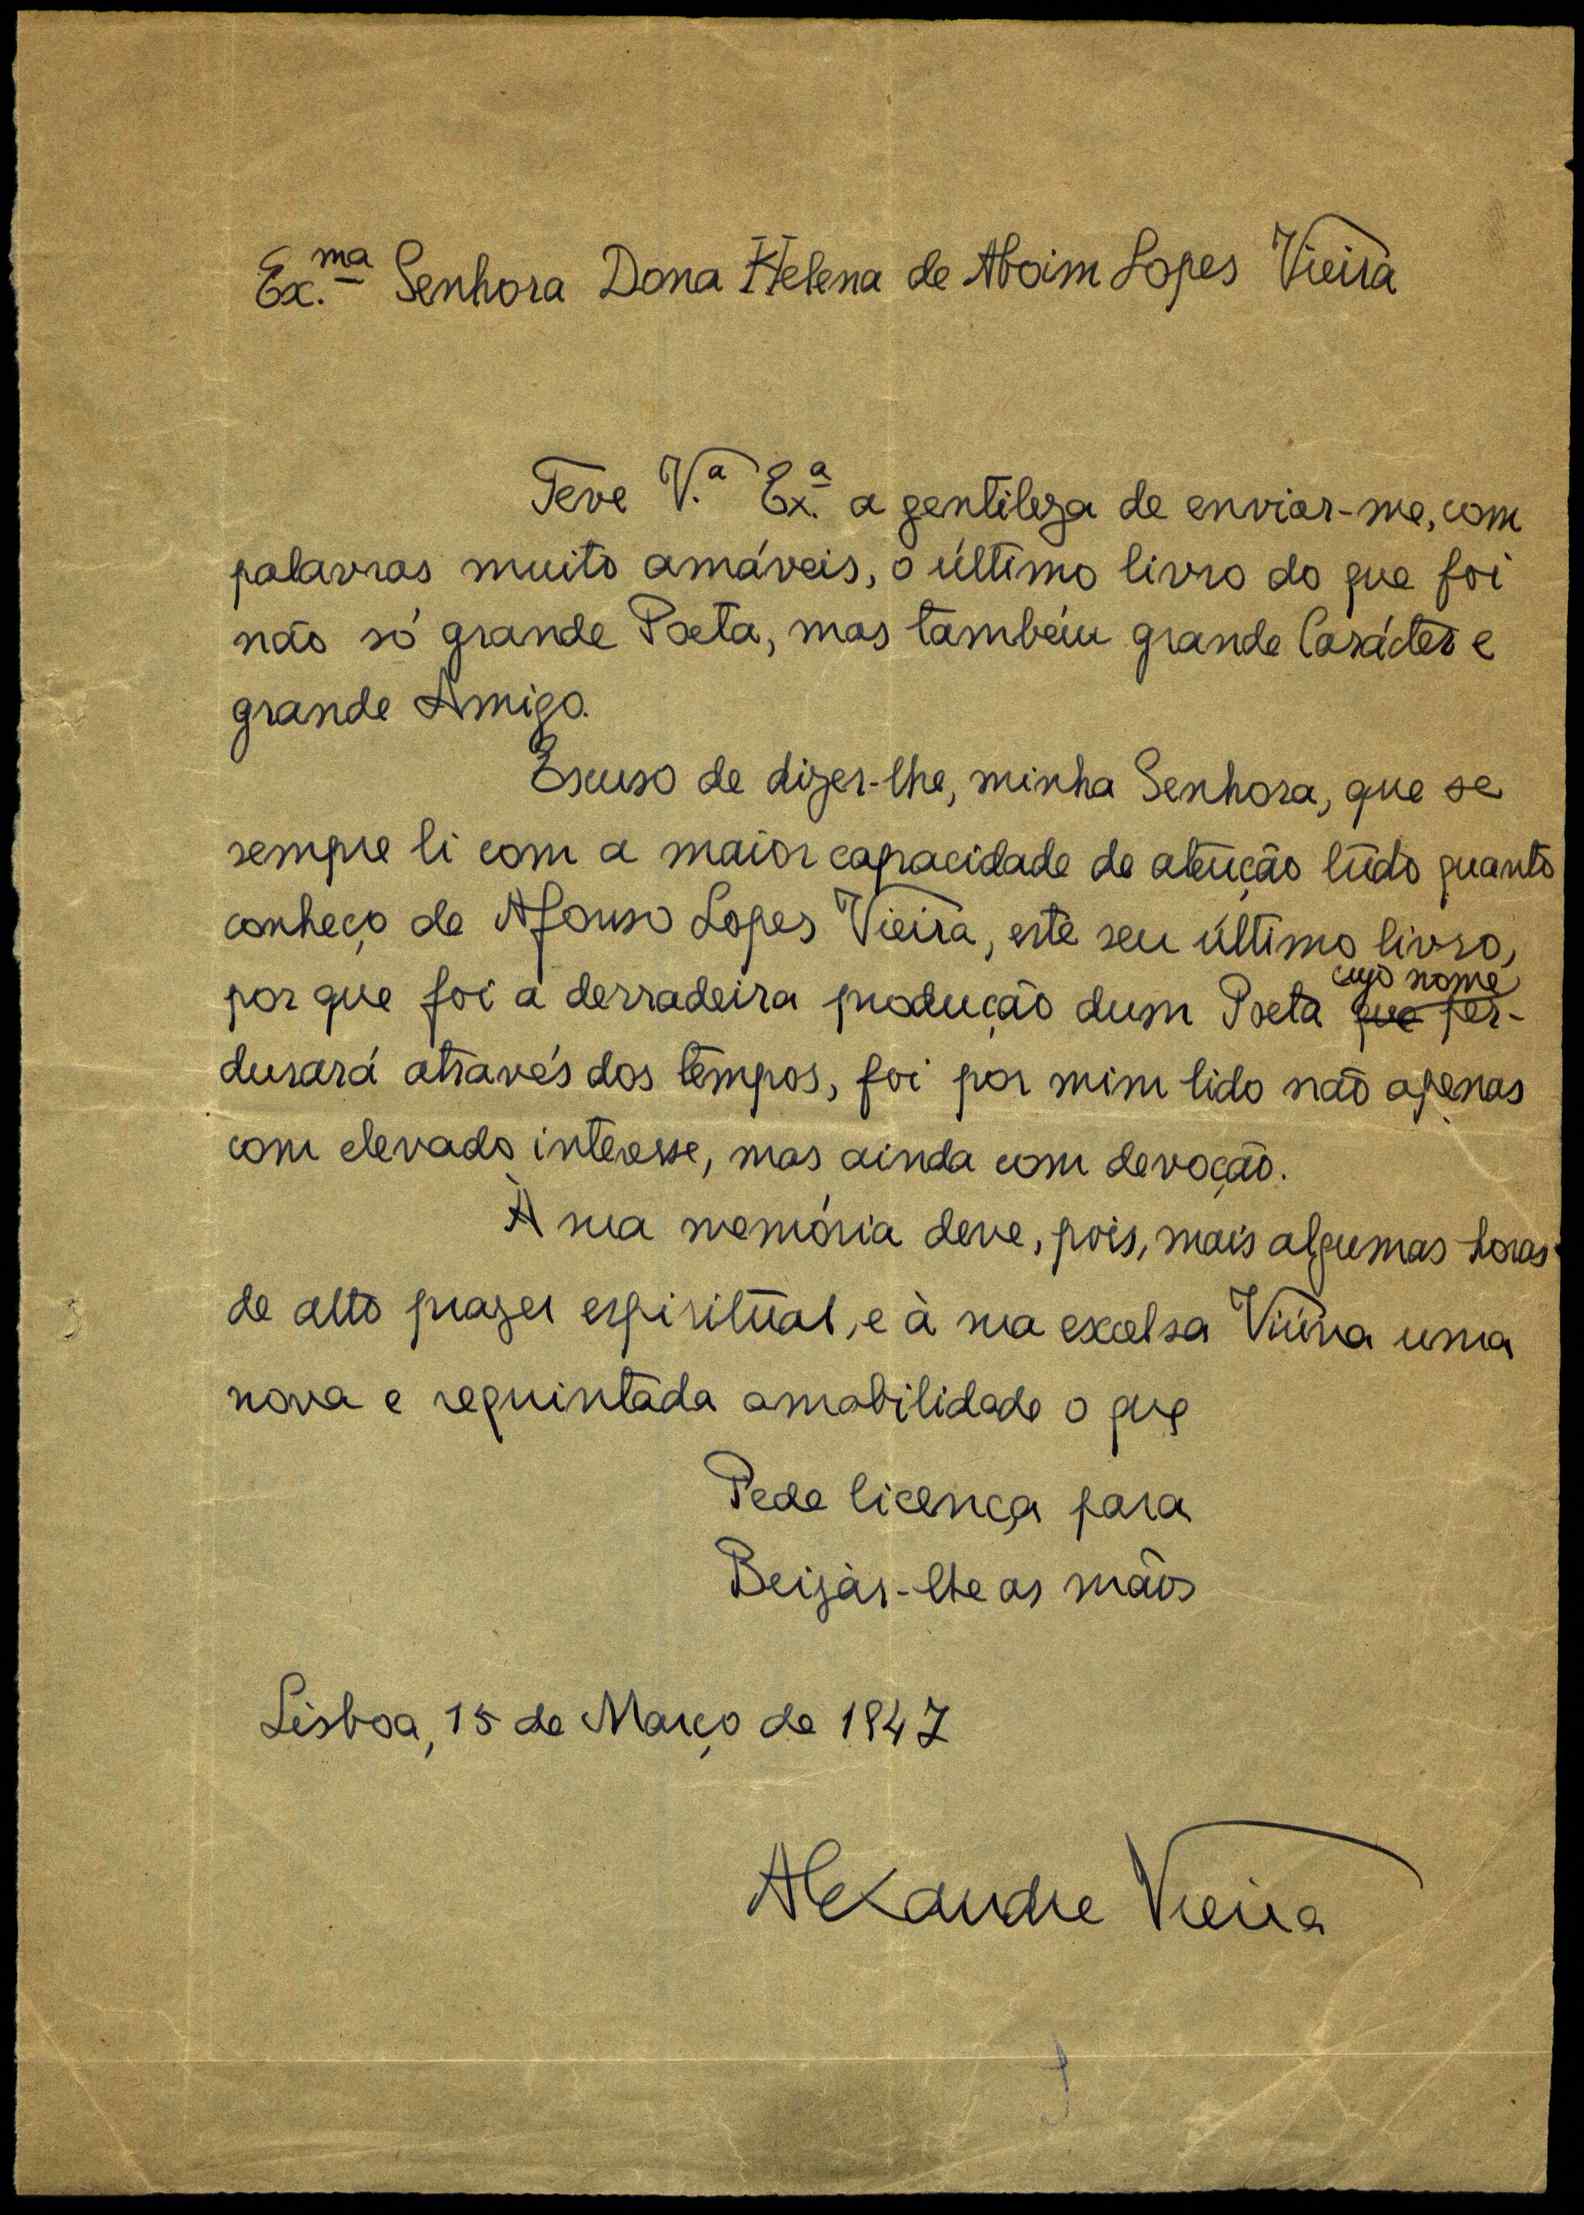 Ex.ma Senhora Dona Helena de Aboim Lopes Vieira
Teve V.a Ex.a a gentileza de enviar-me, com
palavras muito amáveis, o último livro do que foi
não só grande Poeta, mas também grande Carácter e
grande Amigo.
Escuso de dizer-lhe, minha Senhora, que se
sempre li com a maior capacidade de atenção tudo quanto
conheço de Afonso Lopes Vieira, este seu último livro,
por que foi a derradeira produção dum Poeta que cujo nome per-
durará através dos tempos, foi por mim lido não apenas
com elevado interesse, mas ainda com devoção.
À sua memória deve, pois, mais algumas horas
de alto prazer espiritual, e à sua excelsa Viúva uma
nova e requintada amabilidade o que
Pede licença para
Beijar-lhe as mãos
Lisboa, 15 de Março de 1947
Alexandre Vieira